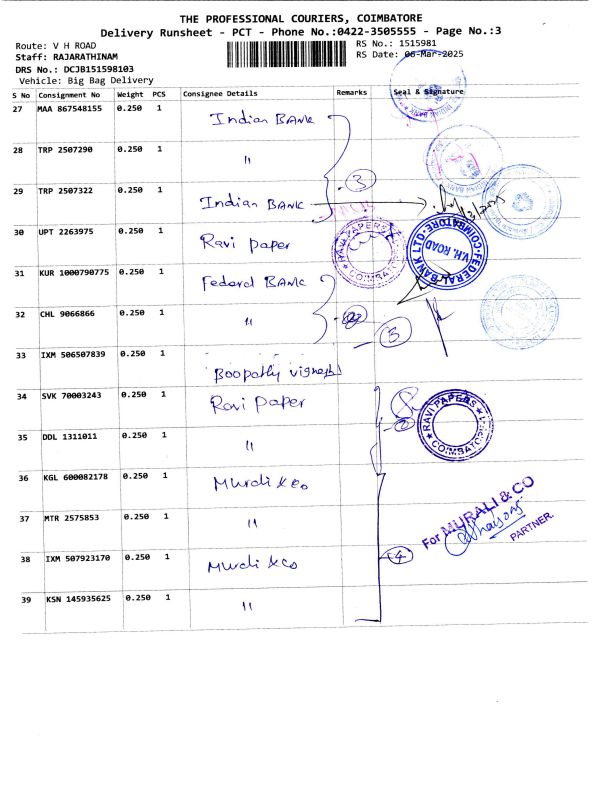 THE PROFESSIONAL COURIERS, COIMBATORE
Delivery Runsheet - PCT - Phone No.:0422-3505555 - Page No.:3
Route: V H ROAD
RS No.: 1515981
Staff: RAJARATHINAM
RS Date: 06-Mar-2025
DRS No.: DCJB151598103
Vehicle: Big Bag Delivery
S No Consignment No Weight PCS Consignee Details Remarks Seal & Signature
27 MAA 867548155 0.250 1 Indian BANK
28 TRP 2507290 0.250 1 "
3
29 TRP 2507322 0.250 1 Indian BANK
30 UPT 2263975 0.250 1 Ravi paper
RAVI PAPERS
COIMBATORE
FEDERAL BANK LTD.
COIMBATORE
V.H. ROAD
31 KUR 1000790775 0.250 1 Federal BANK
32 CHL 9066866 0.250 1 "
3
33 IXM 506507839 0.250 1 Boopathy vignesh
34 SVK 70003243 0.250 1 Ravi paper
RAVI PAPERS
COIMBATORE
35 DDL 1311011 0.250 1 "
36 KGL 600082178 0.250 1 Murali & Co
37 MTR 2575853 0.250 1 "
For MURALI & CO
PARTNER.
38 IXM 507923170 0.250 1 Murali & Co
4
39 KSN 145935625 0.250 1 "